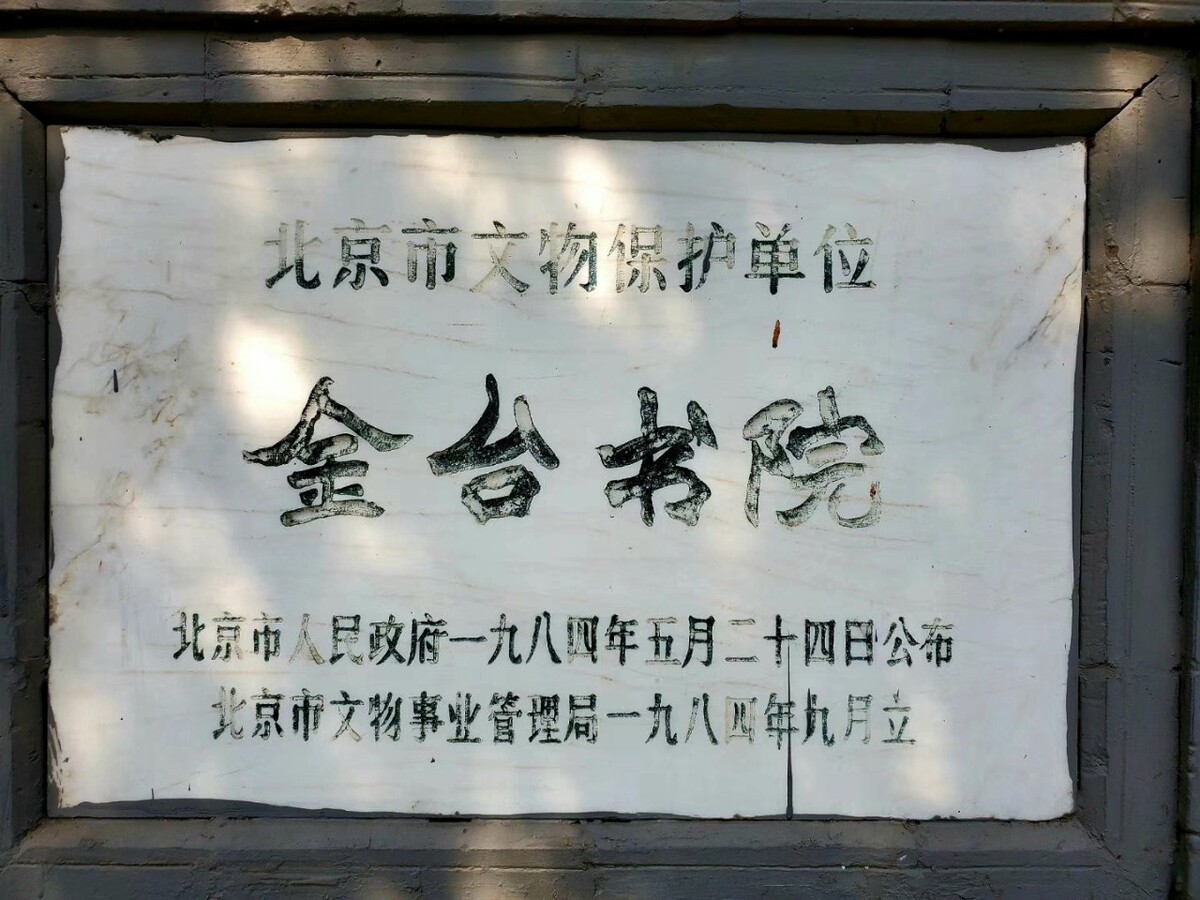 北京市文物保护单位
金台书院
北京市人民政府一九八四年五月二十四日公布
北京市文物事业管理局一九八四年九月立